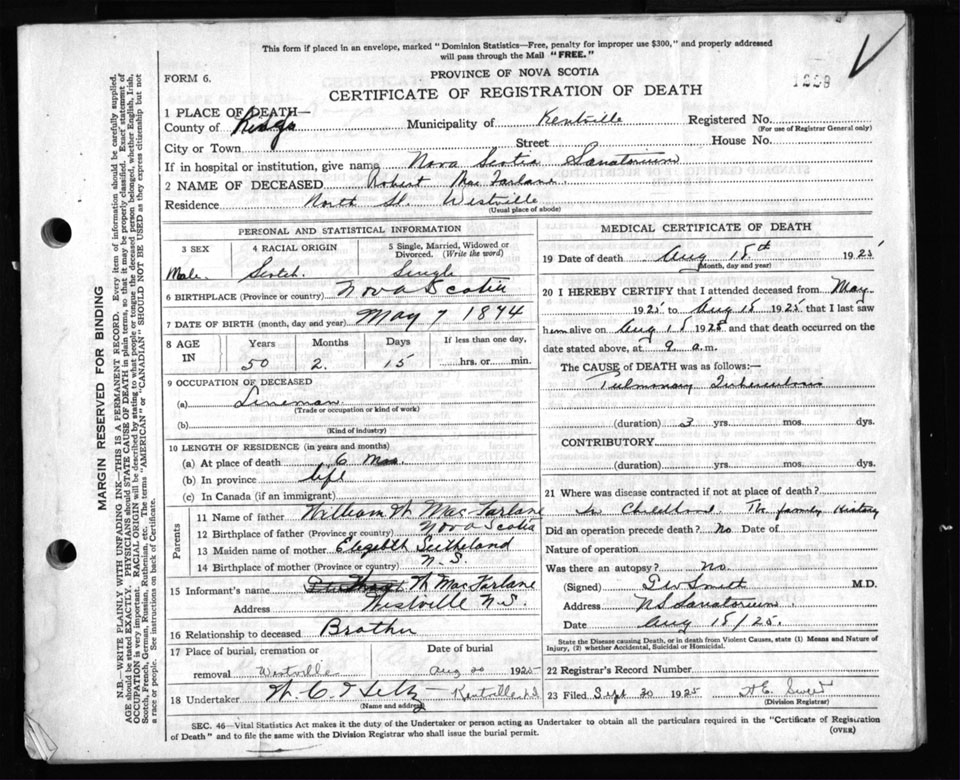 This form if placed in an envelope, marked "Dominion Statistics—Free, penalty for improper use $300," and properly addressed
will pass through the Mail "FREE."
FORM 6.
PROVINCE OF NOVA SCOTIA
CERTIFICATE OF REGISTRATION OF DEATH
1 PLACE OF DEATH—
County of Kings Municipality of Kentville Registered No.
(For use of Registrar General only)
City or Town Street House No.
If in hospital or institution, give name Nova Scotia Sanatorium
2 NAME OF DECEASED Robert MacFarlane
Residence North St. Westville
(Usual place of abode)
PERSONAL AND STATISTICAL INFORMATION
3 SEX 4 RACIAL ORIGIN 5 Single, Married, Widowed or
Divorced. (Write the word)
Male Scotch Single
6 BIRTHPLACE (Province or country) Nova Scotia
7 DATE OF BIRTH (month, day and year) May 7 1874
8 AGE IN Years Months Days If less than one day,
50 2 15 hrs. or min.
9 OCCUPATION OF DECEASED
(a) Lineman
(Trade or occupation or kind of work)
(b)
(Kind of industry)
10 LENGTH OF RESIDENCE (in years and months)
(a) At place of death 6 Mos.
(b) In province life
(c) In Canada (if an immigrant)
Parents
11 Name of father William H. MacFarlane
12 Birthplace of father (Province or country) Nova Scotia
13 Maiden name of mother Elizabeth Sutherland
14 Birthplace of mother (Province or country) N.S.
15 Informant's name MacFarlane
Address Westville N.S.
16 Relationship to deceased Brother
17 Place of burial, cremation or Date of burial
removal Westville Aug 20 1925
18 Undertaker Kentville N.S.
(Name and address)
MEDICAL CERTIFICATE OF DEATH
19 Date of death Aug 18th 1925
(Month, day and year)
20 I HEREBY CERTIFY that I attended deceased from May
1925 to Aug 18 1925 that I last saw
him alive on Aug 18 1925 and that death occurred on the
date stated above, at 9 a.m.
The CAUSE of DEATH was as follows:—
Pulmonary Tuberculosis
(duration) 3 yrs. mos. dys.
CONTRIBUTORY
(duration) yrs. mos. dys.
21 Where was disease contracted if not at place of death?
In Childhood. The family history
Did an operation precede death? No Date of
Nature of operation
Was there an autopsy? No.
(Signed) M.D.
Address NS Sanatorium
Date Aug 18/25.
State the Disease causing Death, or in death from Violent Causes, state (1) Means and Nature of
Injury, (2) whether Accidental, Suicidal or Homicidal.
22 Registrar's Record Number
23 Filed Sept 20 1925
(Division Registrar)
SEC. 46—Vital Statistics Act makes it the duty of the Undertaker or person acting as Undertaker to obtain all the particulars required in the "Certificate of Registration
of Death" and to file the same with the Division Registrar who shall issue the burial permit.
(OVER)
MARGIN RESERVED FOR BINDING
N.B.—WRITE PLAINLY WITH UNFADING INK—THIS IS A PERMANENT RECORD. Every item of information should be carefully supplied.
AGE should be stated EXACTLY. PHYSICIANS should STATE CAUSE OF DEATH in plain terms, so that it may be properly classified. Exact statement of
OCCUPATION is very important. RACIAL ORIGIN will be described by stating to what people or tongue the deceased person belonged, whether English, Irish,
Scotch, French, German, Russian, Ruthenian, etc. The terms "AMERICAN" or "CANADIAN" SHOULD NOT BE USED as they express citizenship but not
a race or people. See instructions on back of Certificate.